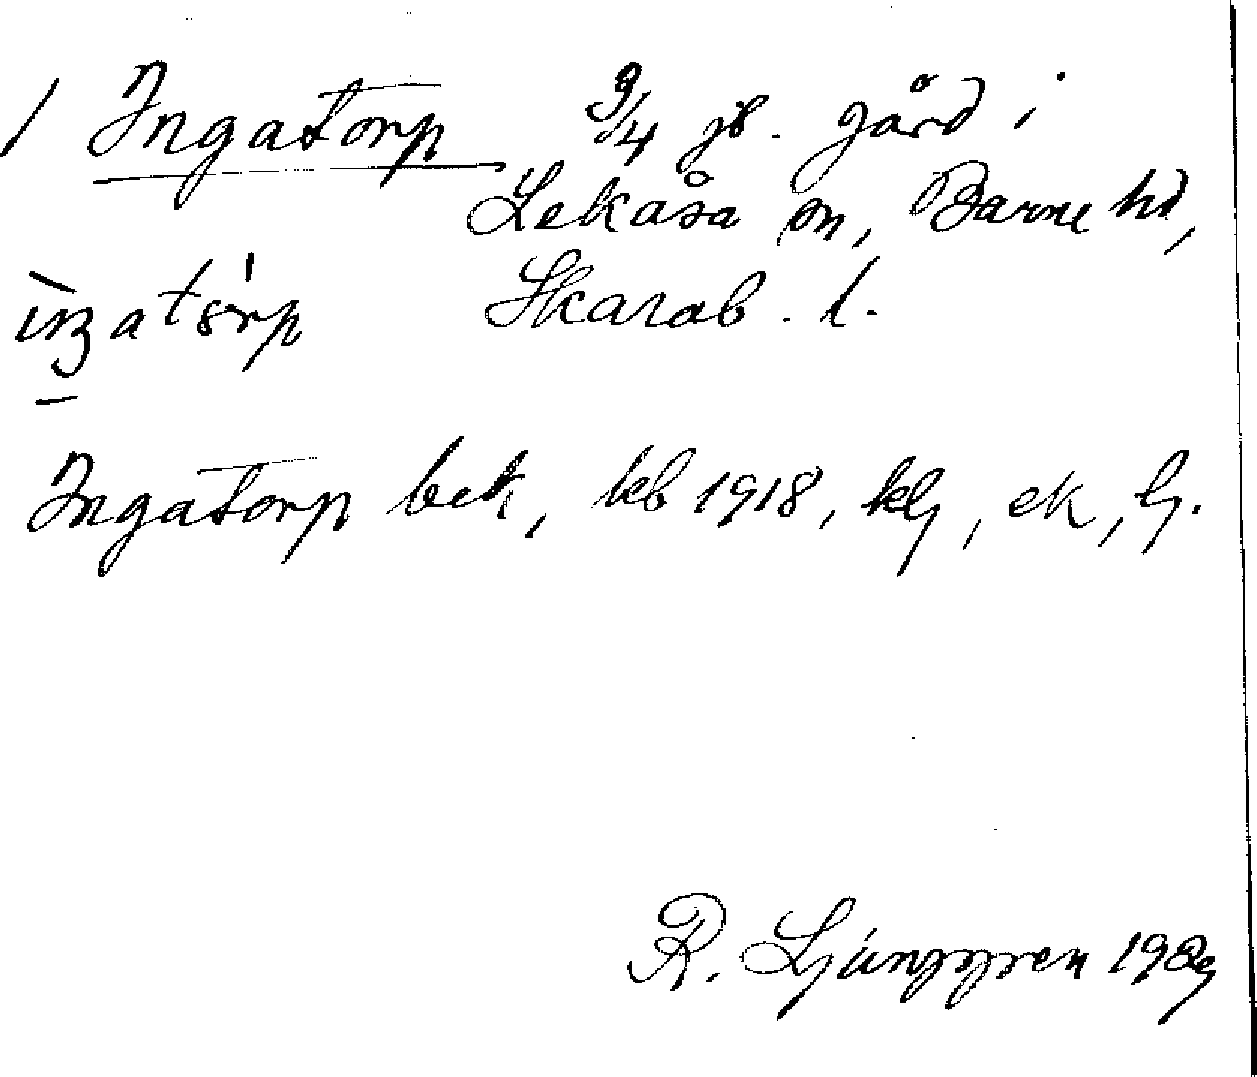 / Ingatorp 9/4 jb. gård i
Lekåsa sn, Barne hd,
Skarab. l.
Ingatorp bek, kb 1918, klj, ek, lj.
R. Ljunggren 1929